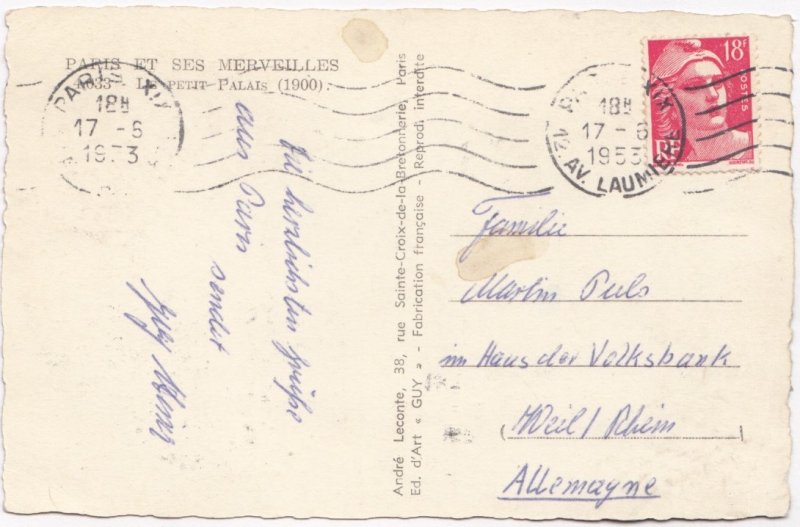 PARIS ET SES MERVEILLES
4033 - LE PETIT PALAIS (1900).
PARIS XIX
18H
17 - 6
1953
PARIS XIX
18H
17 - 6
1953
12, AV. LAUMIERE
18F
POSTES
RF
Die herzlichsten Grüße
aus Paris
sendet
André Leconte, 38, rue Sainte-Croix-de-la-Bretonnerie, Paris
Ed. d'Art « GUY » - Fabrication française - Reprod. interdite
Familie
Martin Puls
im Haus der Volksbank
Weil/Rhein
Allemagne